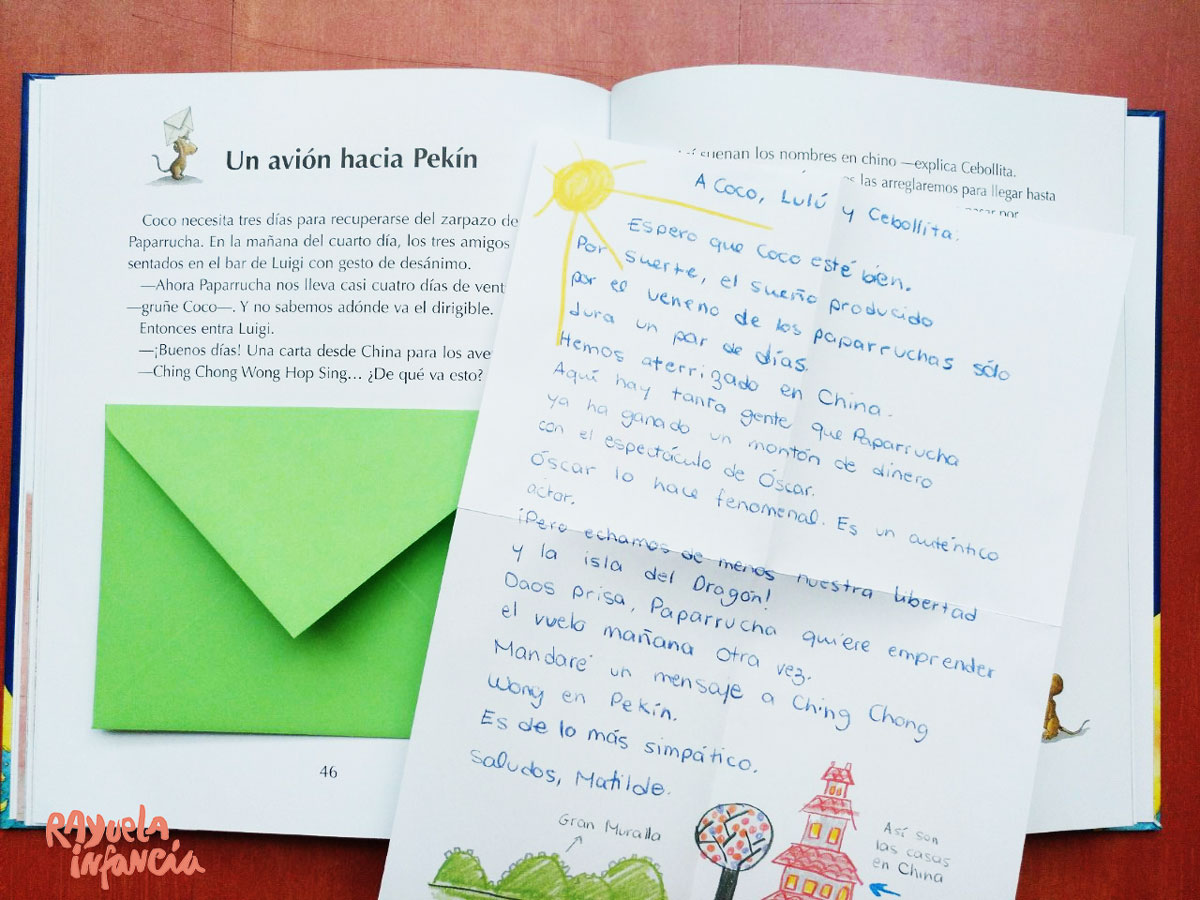 Un avión hacia Pekín
Coco necesita tres días para recuperarse del zarpazo de
Paparrucha. En la mañana del cuarto día, los tres amigos
sentados en el bar de Luigi con gesto de desánimo.
—Ahora Paparrucha nos lleva casi cuatro días de
—gruñe Coco—. Y no sabemos adónde va el dirigible.
Entonces entra Luigi.
—¡Buenos días! Una carta desde China para los
—Ching Chong Wong Hop Sing... ¿De qué va esto?
46
suenan los nombres en chino —explica Cebollita.
las arreglaremos para llegar hasta
A Coco, Lulú y Cebollita:
Espero que Coco esté bien.
Por suerte, el sueño producido
por el veneno de los paparruchas sólo
dura un par de días.
Hemos aterrizado en China.
Aquí hay tanta gente que Paparrucha
ya ha ganado un montón de dinero
con el espectáculo de Óscar.
Óscar lo hace fenomenal. Es un auténtico
actor.
¡Pero echamos de menos nuestra libertad
y la isla del Dragón!
Daos prisa, Paparrucha quiere emprender
el vuelo mañana otra vez.
Mandaré un mensaje a Ching Chong
Wong en Pekín.
Es de lo más simpático.
Saludos, Matilde.
Gran Muralla
Así son
las casas
en China
RAyuela
infancia